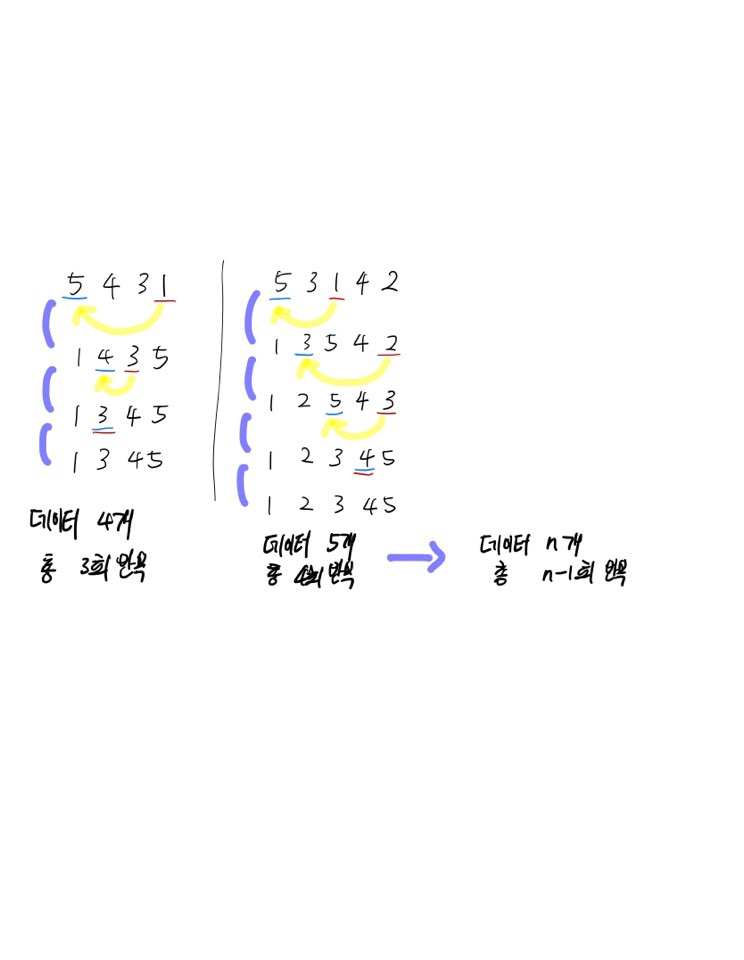 5 4 3 1
1 4 3 5
1 3 4 5
1 3 4 5
데이터 4개
총 3회 반복
5 3 1 4 2
1 3 5 4 2
1 2 5 4 3
1 2 3 4 5
1 2 3 4 5
데이터 5개
총 4회 반복
데이터 n개
총 n-1회 반복